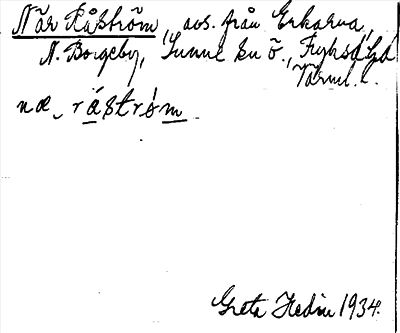 När Råström, avs. från Erkarna,
N. Borgeby, Sunne sn ö., Fryksd. hd
Värml. l.
næ, råström
Greta Hedin 1934.